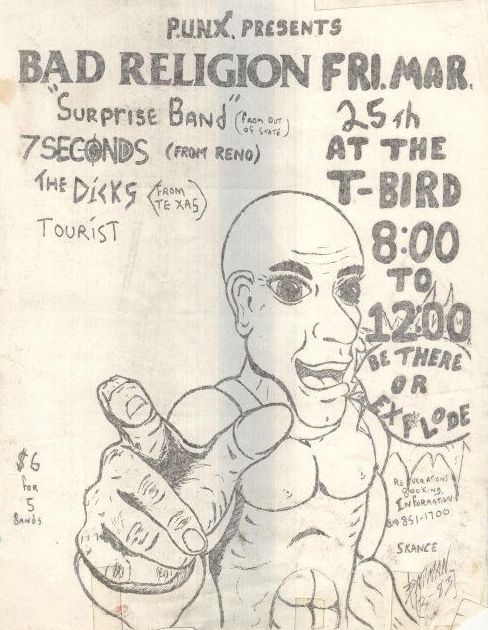 P.U.N.X. PRESENTS
BAD RELIGION FRI. MAR.
"SURPRISE BAND" (FROM OUT
OF STATE)
25th
7 SECONDS (FROM RENO)
AT THE
THE DICKS (FROM
TEXAS)
T-BIRD
TOURIST
8:00
TO
12:00
BE THERE
OR
EXPLODE
$6
FOR
5
BANDS
BOOKING
INFORMATION
851-1700
SKANCE
83